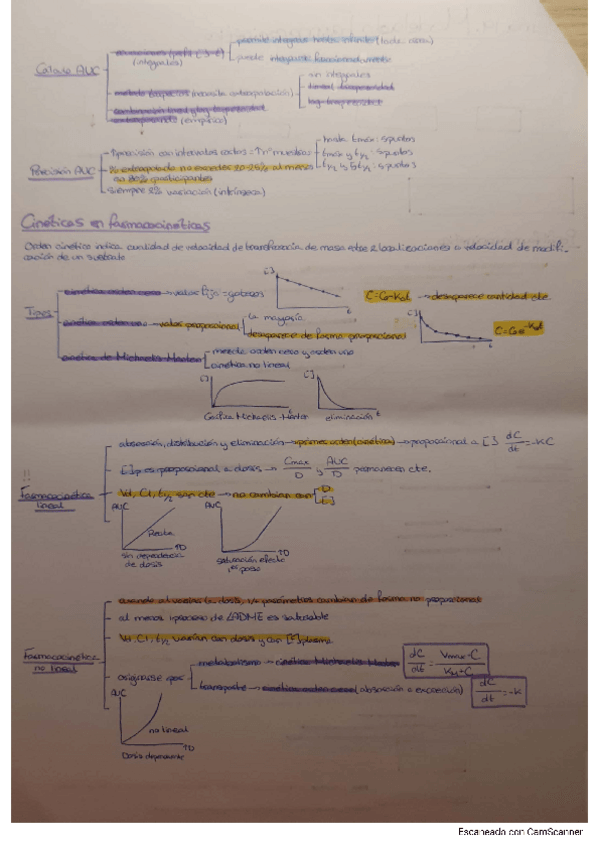 Cálculo AUC
ecuaciones (perfil [ ]-t)
(integrales)
permite integrar hasta infinito
puede integrarse
método trapecios (necesita extrapolación)
sin integrales
lineal trapezoidal
log-trapezoidal
combinación lineal y log trapezoidal
(empírico)
Precisión AUC
↑precisión con intervalos cortos = ↑nº muestras
hasta tmax: 5 puntos
tmax y t1/2: 5 puntos
t1/2 y 5t1/2: 5 puntos
% extrapolado no exceder 20-25% al menos
no 80% participantes
siempre 8% variación (intrínseca)
Cinéticas en farmacocinéticas
Orden cinético indica cantidad de velocidad de transferencia de masa entre 2 localizaciones o velocidad de modifi-
cación de un sustrato
Tipos
cinética orden cero → valor fijo = goteos
[ ]
t
C=C0-K0t → desaparece cantidad cte
cinética orden uno → valor proporcional
la mayoría
desaparece de forma proporcional
[ ]
t
C=C0e^-Ket
cinética de Michaelis Menten
mezcla orden cero y orden uno
cinética no lineal
[ ]
t
[ ]
t
eliminación
!!
Farmacocinética
lineal
absorción, distribución y eliminación → primer orden (cinética) → proporcional a [ ] dC/dt = -KC
[ ]p es proporcional a dosis → Cmax/D y AUC/D permanecen cte.
Vd, Cl, t1/2 son cte → no cambian con
D
[ ]
AUC
Recta
↑D
sin dependencia
de dosis
AUC
↑D
saturación efecto
1er paso
Farmacocinética
no lineal
cuando al variar la dosis, 1/+ parámetros cambian de forma no proporcional
al menos 1 proceso de LADME es saturable
Vd, Cl, t1/2 varían con dosis y con [ ]plasma
originarse por:
metabolismo → cinética Michaelis Menten
dC/dt = Vmax·C/KM+C
transporte → cinética orden cero (absorción o excreción)
dC/dt = -K
AUC
no lineal
↑D
Dosis dependiente
Escaneado con CamScanner